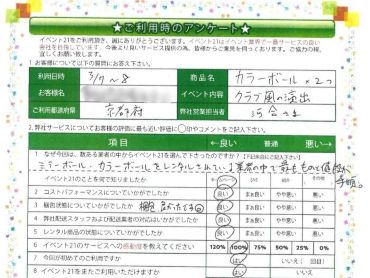 ★ご利用時のアンケート★
イベント21をご利用頂き、誠にありがとうございます。イベント21はイベント業界で一番サービスの良い
会社を目指しています。今後より良いサービス提供の為、皆様からご意見を伺っております。ご協力の程、
宜しくお願い致します。
1. お客様について以下の質問にお答え下さい。
利用日時 3/7~8 商品名 カラーボール×2つ
お名前 イベント内容 クラブ風の演出
ご利用都道府県 京都府 弊社営業担当者 河合さま
2. 弊社サービスについてお客様の評価に最も近い評価に○印やコメントをご記入下さい。
項目 ←良い 普通 悪い→
1 なぜ今回、数ある業者の中からイベント21を選んで下さったのですか?
ミラーボール・カラーボールをレンタルされている業者の中で
イベント21のことを何で知りましたか ホームページ その他
2 コストパフォーマンスについていかがでしたか 良い まぁ良い やや悪い 悪い
3 梱包状態についていかがでしたか 良い まぁ良い やや悪い 悪い
4 弊社配送スタッフおよび配送業者の対応はいかがでしたか 良い まぁ良い やや悪い 悪い
5 レンタル商品の状態についていかがでしたか 良い まぁ良い やや悪い 悪い
6 イベント21のサービスへの感動度を教えてください 120% 100% 75% 50% 25% 0%
7 今回が初めてのご利用ですか はい いいえ( 回目)
8 イベント21をまたご利用いただけますか はい いいえ